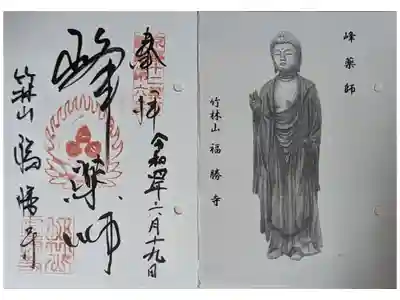 峰薬師
竹林山 福勝寺
奉拝
令和四年六月十九日
峰薬師
竹林山 福勝寺